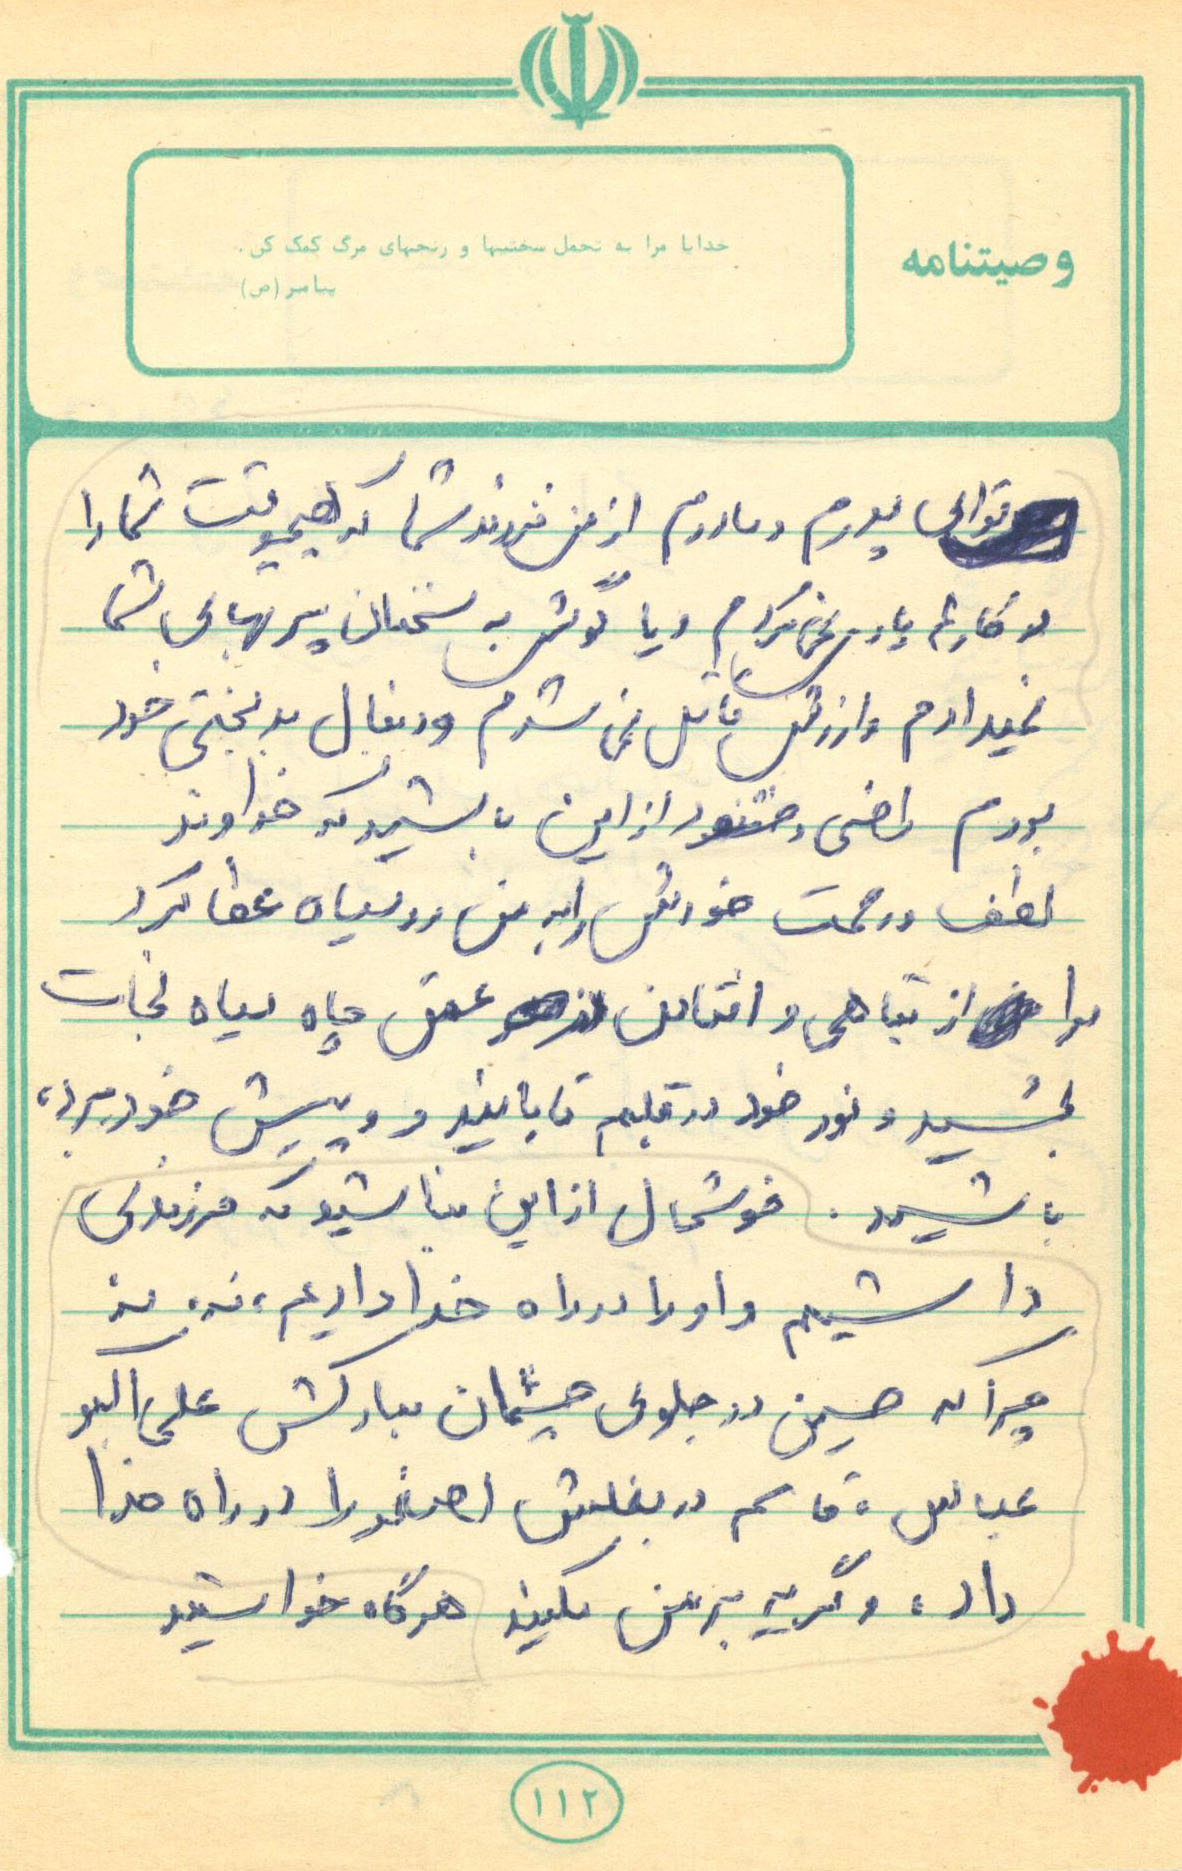 وصیتنامه
خدایا مرا به تحمل سختیها و رنجهای مرگ کمک کن.
پیامبر (ص)
توای پدرم و مادرم از من فرزند شما که هیچوقت شما را
در کارتم یاری نمی‌کردم و یا گوش به سخنان پر بهای شما
نمیدادم و ارزش قائل نمی شدم و دنبال بدبختی خود
بودم راضی و خشنود از این باشید که خداوند
لطف و رحمت خودش را به من رو سیاه عطا کرد
مرا از تباهی و افتادن عمق چاه سیاه نجات
بخشید و نور خود در قلبم تابانید و پیش خود برد،
باشید. خوشحال از این مباشید که فرزندی
داشتیم و او را در راه خدا دادیم، نه، نه
چرا که حسین در جلوی چشمان مبارکش علی اکبر
عباس، قاسم در بغلش اصغر را در راه خدا
داد، و گریه بر من نکنید هرگاه خواستید
۱۱۲